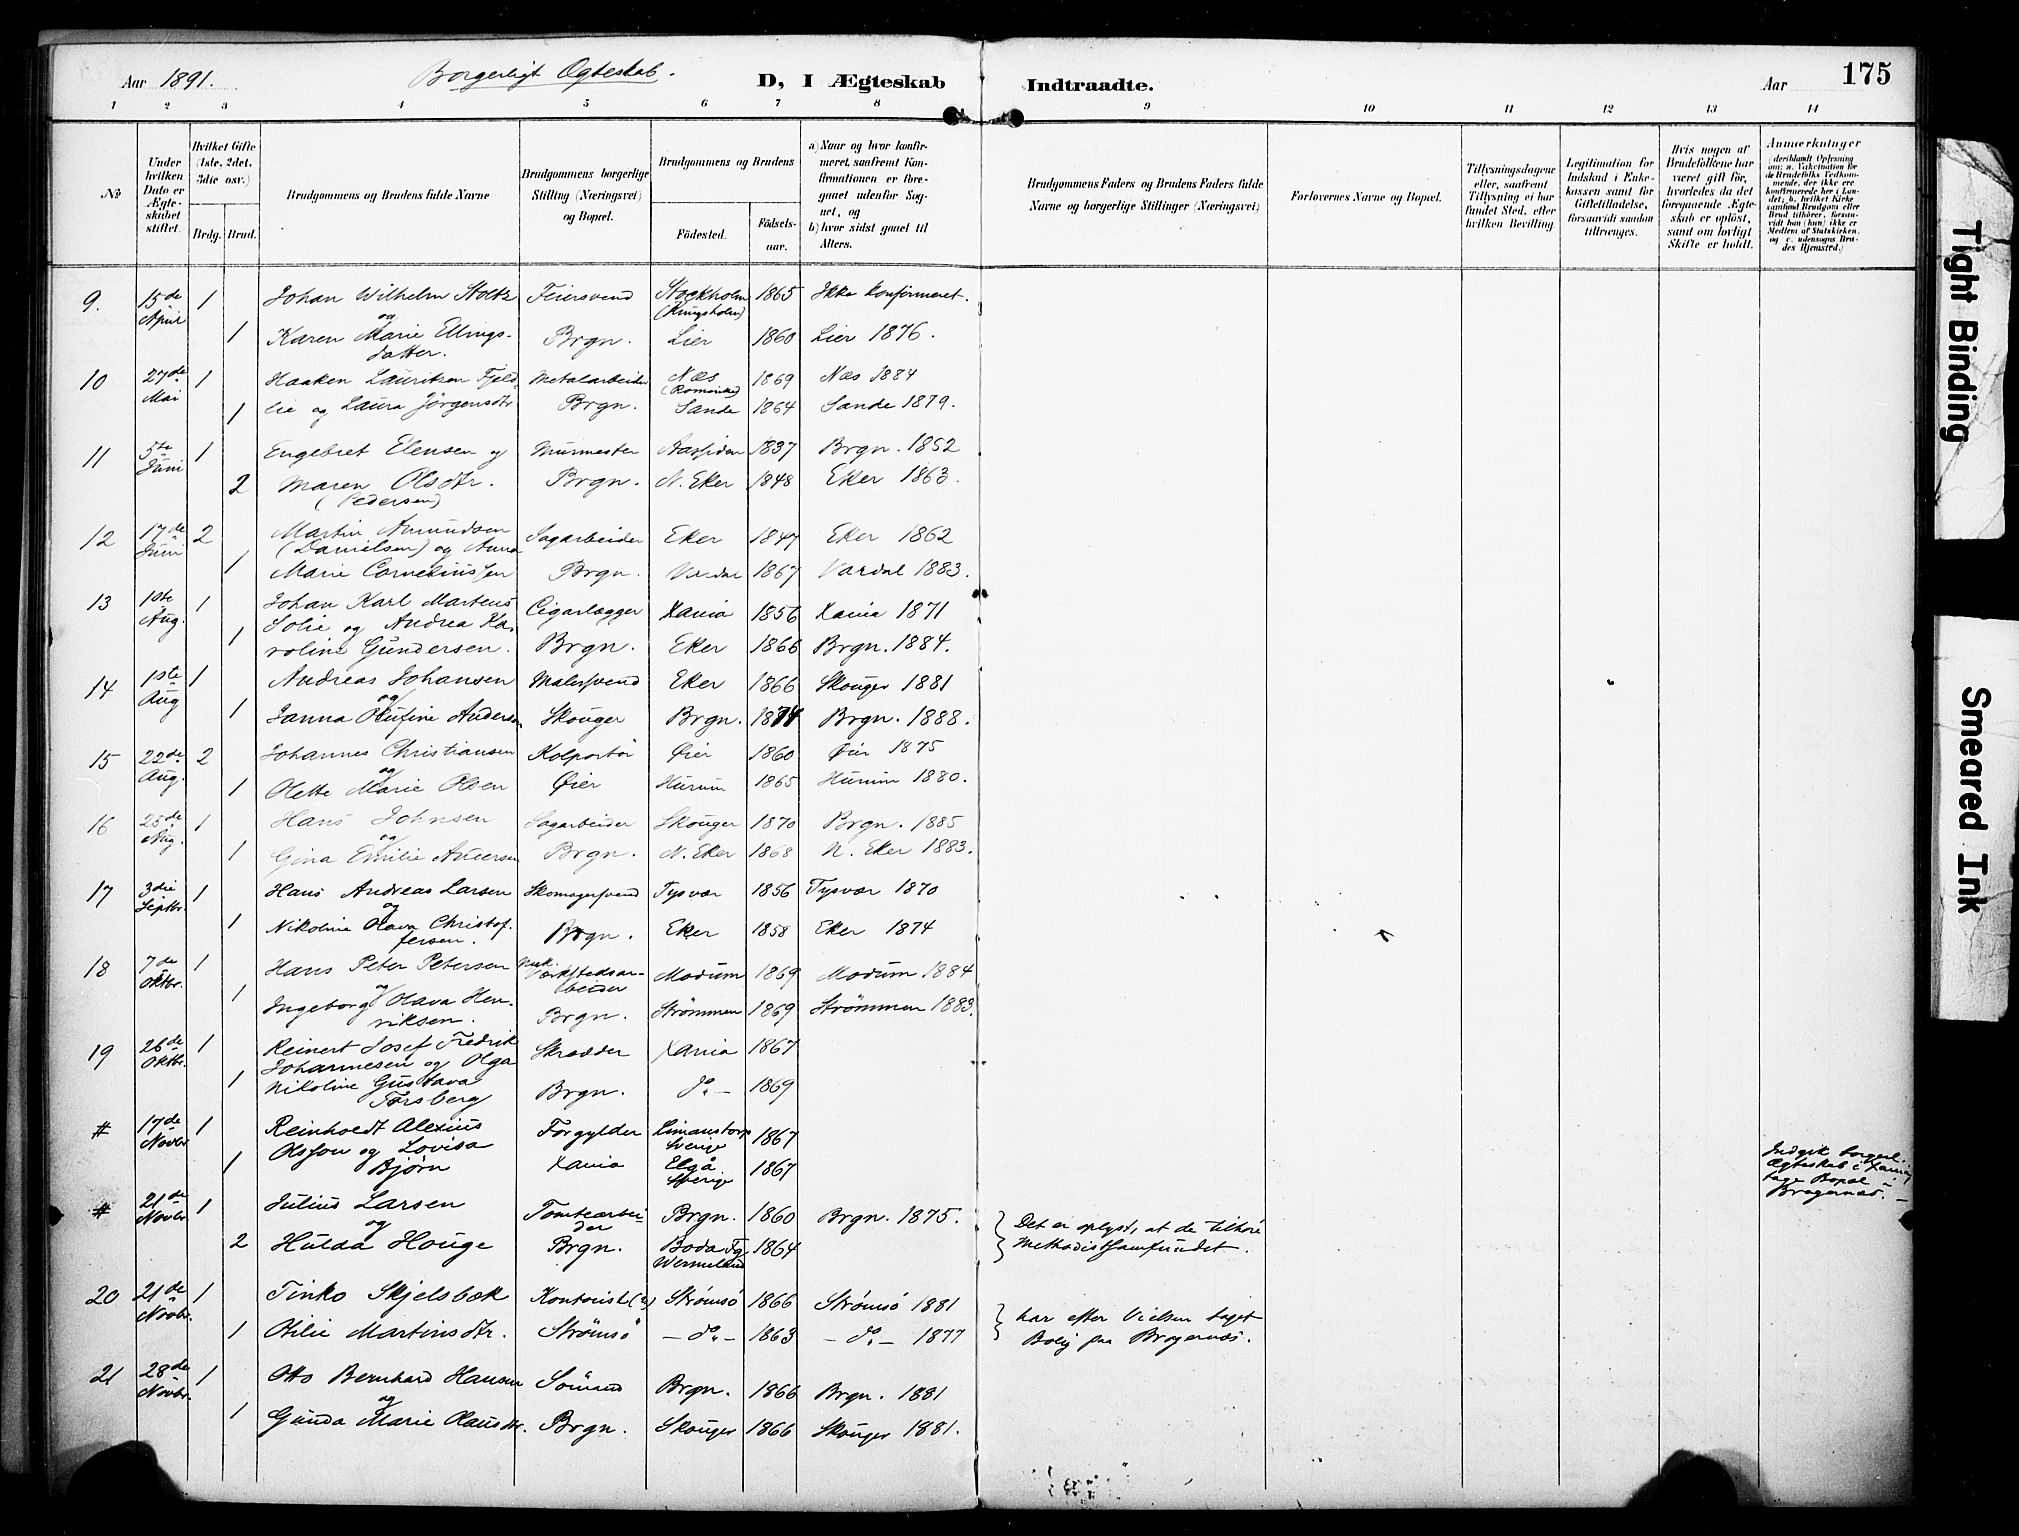 Aar 1891. Borgerligt Ægteskab. D, I Ægteskab Indtraadte. Aar 175
1 2 3 4 5 6 7 8 9 10 11 12 13 14
No
Under hvilken Dato er Ægteskabet stiftet.
Hvilket Gifte (1ste, 2det, 3die osv.)
Brdg. Brud.
Brudgommens og Brudens fulde Navne
Brudgommens borgerlige Stilling (Næringsvei) og Bopæl.
Brudgommens og Brudens
Födested. Födselsaar.
a) Naar og hvor konfirmeret, saafremt Konfirmationen er foregaaet udenfor Sognet, og
b) hvor sidst gaaet til Alters.
Brudgommens Faders og Brudens Faders fulde Navne og borgerlige Stillinger (Næringsvei)
Forlovernes Navne og Bopæl.
Tillysningsdagene eller, saafremt Tillysning ei har fundet Sted, efter hvilken Bevilling
Legitimation for Indskud i Enkekassen samt for Giftetilladelse, forsaavidt saadan tiltrænges.
Hvis nogen af Brudefolkene har været gift før, hvorledes da det foregaaende Ægteskab er opløst, samt om lovligt Skifte er holdt.
Anmerkninger
(deriblandt Oplysning om: a. Vakcination for de Brudefolks Vedkommende, der ikke ere konfirmerede her i Landet; b. hvilket Kirkesamfund Brudgom eller Brud tilhører, forsavidt han (hun) ikke er Medlem af Statskirken, og c. udensogns Brudes Hjemsted.)
9. 15de April 1 Johan Wilhelm Stoltz Feiersvend Stockholm (Kungsholm) 1865 Ikke konfirmeret.
og
1 Karen Marie Ellingsdatter. Brgn. Lier 1860 Lier 1876.
10 27de Mai 1 Haaken Lauritsen Fjeld- Metalarbeider Næs (Romerike) 1869 Næs 1884
1 lie og Laura Jörgensdtr Brgn. Sande 1864 Sande 1879.
11 5te Juni 1 Engebret Elensen og Murmester Aassiden 1837 Brgn. 1852
2 Maren Olsdtr. (Pedersen) Brgn. N. Eker 1848 Eker 1863.
12 17de Juni 2 Martin Amundsen (Danielsen) og Anna Sagarbeider Eker 1847 Eker 1862
1 Marie Corneliussen Brgn. Vardal 1867 Vardal 1883.
13 1ste Aug. 1 Johan Karl Martens Cigarlægger Xania 1856 Xania 1871
Solie og Andrea Ka-
1 roline Gundersen. Brgn. Eker 1866 Brgn. 1884.
14 1ste Aug 1 Andreas Johansen Malersvend Eker 1866 Skouger 1881
og
1 Janna Rufine Andersen Skouger Brgn. 1874 Brgn. 1888.
15 22de Aug. 2 Johannes Christiansen Kolportör Øier 1860 Øier 1875
og
1 Olette Marie Olsen Øier Hurum 1865 Hurum 1880.
16 25de Aug. 1 Hans Johnsen Sagarbeider Skouger 1870 Brgn. 1885
og
1 Gina Emilie Andersen Brgn. N. Eker 1868 N. Eker 1883.
17 3die Septbr. 1 Hans Andreas Larsen Skomagersvend Tysvær 1856 Tysvær 1870
og
1 Nikoline Olava Christoffersen. Brgn. Eker 1858 Eker 1874
18 7de Oktbr. 1 Hans Peter Petersen Mek. Værkstedsarbeider Modum 1869 Modum 1884
og
1 Ingeborg Olava Henriksen. Brgn. Strömmen 1869 Strömmen 1883.
19 26de Oktbr. 1 Reinert Josef Fredrik Skrædder Xania 1867
Johannesen og Olga
1 Nikoline Gustava Forsberg Brgn. do - 1869
# 17de Novbr 1 Reinholdt Alexius Forgylder Sverige 1867
Olsson og Lovisa
1 Bjørn Xania Elgå Sverige 1867
Indgik borgerl. Ægteskab i Xania, tage Bopæl i Bragernæs. -
# 21de Novbr 1 Julius Larsen Tomtearbeider Brgn. 1860 Brgn. 1875.
og
2 Hulda Houge Brgn. Boda Wermeland 1864
Det er oplyst, at de tilhöre Methodistsamfundet.
20 21de Novbr. 1 Tinko Skjelsbæk Kontorist (?) Strömsö 1866 Strömsö 1881
1 Otilie Martinsdtr. Strömsö - do - 1863 - do - 1877
har efter Vielsen taget Bolig paa Bragernæs.
21 28de Novbr. 1 Otto Bernhard Hansen Sömand Brgn. 1866 Brgn. 1881
og
1 Gunda Marie Olausdtr. Brgn. Skouger 1866 Skouger 1881.
Tight Binding
Smeared Ink